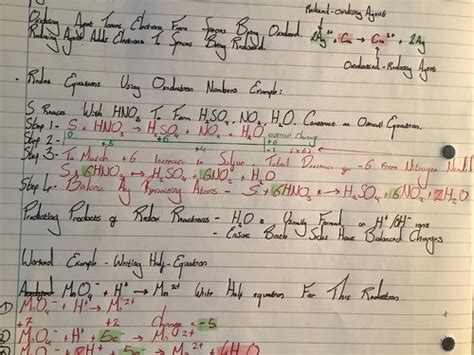 Reduced - Oxidising Agent
Oxidising Agent Takes Electrons From Species Being Oxidised.
2Ag⁺ + Cu → Cu²⁺ + 2Ag
Reducing Agent Adds Electrons To Species Being Reduced.
Oxidised - Reducing Agent
• Redox Equations Using Oxidation Numbers Example:
S Reacts With HNO₃ To Form H₂SO₄, NO₂, H₂O. Construct an Overall Equation.
Step 1 - S + HNO₃ → H₂SO₄ + NO₂ + H₂O
Step 2 - 0 +5 +6 +4 overall change +6 -1 (x6)
Step 3 - To Match +6 Increase in Sulfur, Total Decrease of -6 From Nitrogen
S + 6HNO₃ → H₂SO₄ + 6NO₂ + H₂O
Step 4 - Balance Any Remaining Atoms - S + 6HNO₃ → H₂SO₄ + 6NO₂ + 2H₂O
Predicting Products of Redox Reactions - H₂O is Usually Formed on H⁺/OH⁻ ions
- Ensure Both Sides Have Balanced Charges
Worked Example - Writing Half-Equation
MnO₄⁻ + H⁺ → Mn²⁺ Write Half equation For This Reduction
1) MnO₄⁻ + H⁺ → Mn²⁺
+7 +2 Change = -5
2) MnO₄⁻ + H⁺ + 5e⁻ → Mn²⁺
MnO₄⁻ + 8H⁺ + 5e⁻ → Mn²⁺ + 4H₂O